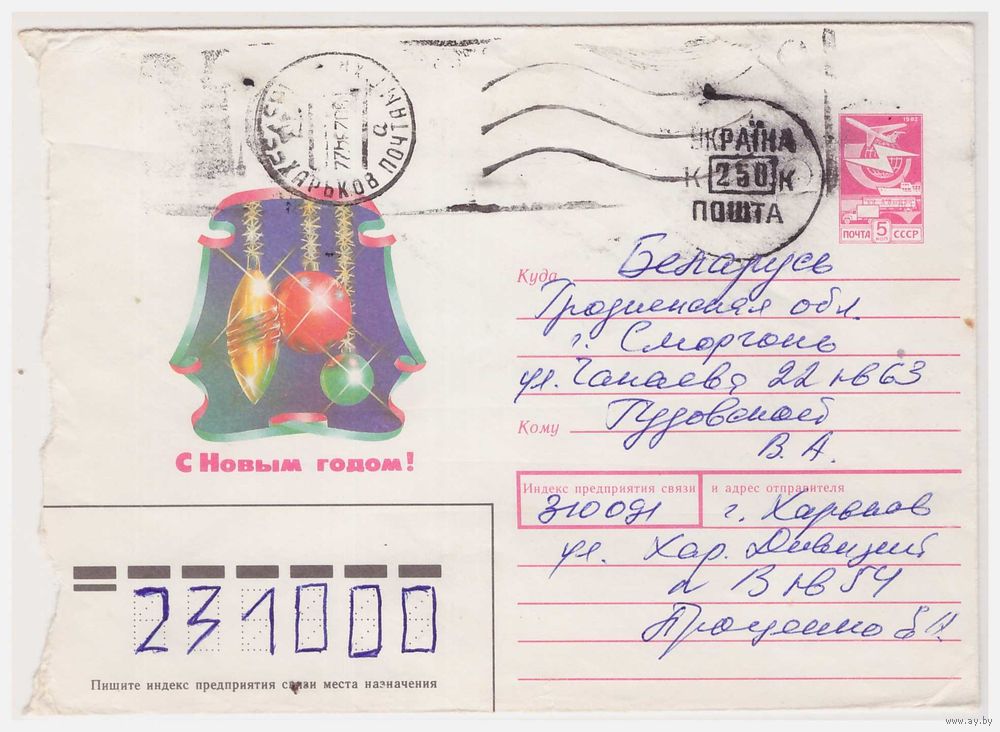 ХАРЬКОВ ПОЧТАМТ
УКРАЇНА
К 250 К
ПОШТА
1982
ПОЧТА 5 КОП СССР
Куда Беларусь
Гродненская обл.
г. Сморгонь
ул. Чапаева 22 кв 63
Кому Гудовской
В. А.
С Новым годом!
Индекс предприятия связи и адрес отправителя
310091 г. Харьков
ул. Хар. Дивизий
В кв 54
Проценко
231000
Пишите индекс предприятия связи места назначения
www.ay.by